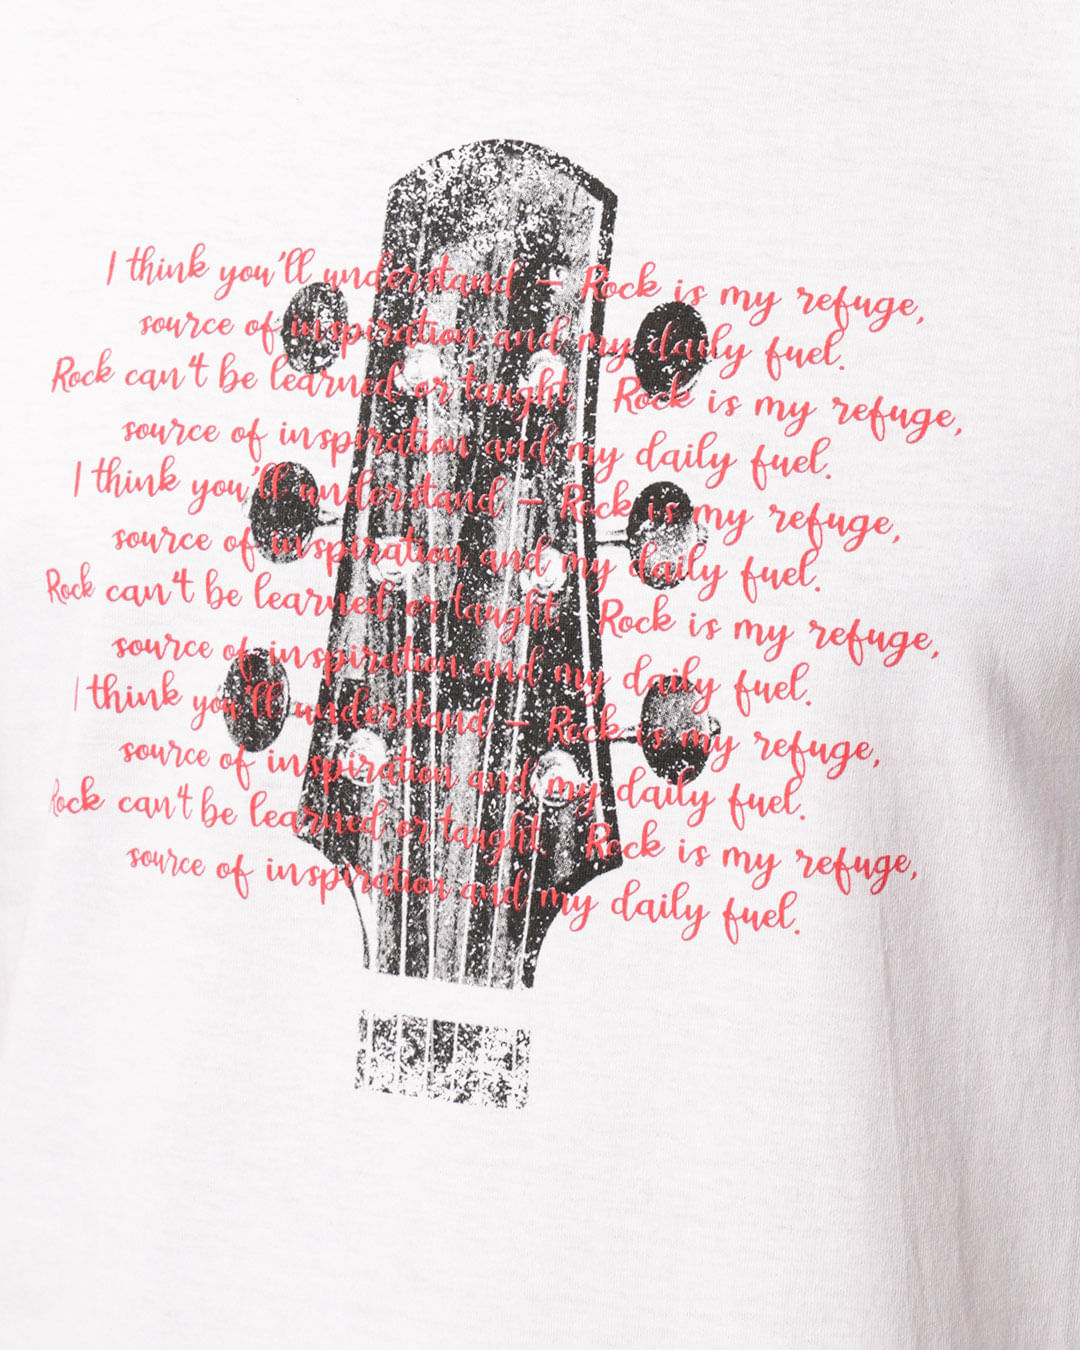 I think you'll understand – Rock is my refuge,
source of inspiration and my daily fuel.
Rock can't be learned or taught Rock is my refuge,
source of inspiration and my daily fuel.
I think you'll understand – Rock is my refuge,
source of inspiration and my daily fuel.
Rock can't be learned or taught Rock is my refuge,
source of inspiration and my daily fuel.
I think you'll understand – Rock is my refuge,
source of inspiration and my daily fuel.
Rock can't be learned or taught Rock is my refuge,
source of inspiration and my daily fuel.